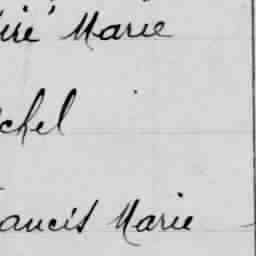 Marie
chel
ancis Marie